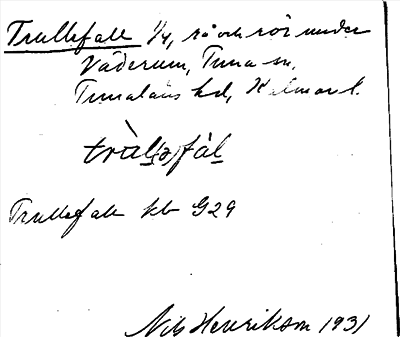 Trullefall 1/4, rå och rör under
Väderum, Tuna sn,
Tunaläns hd, Kalmar l.
tràl(ə)fàl
Trullefall kb G29
Nils Henrikson 1931